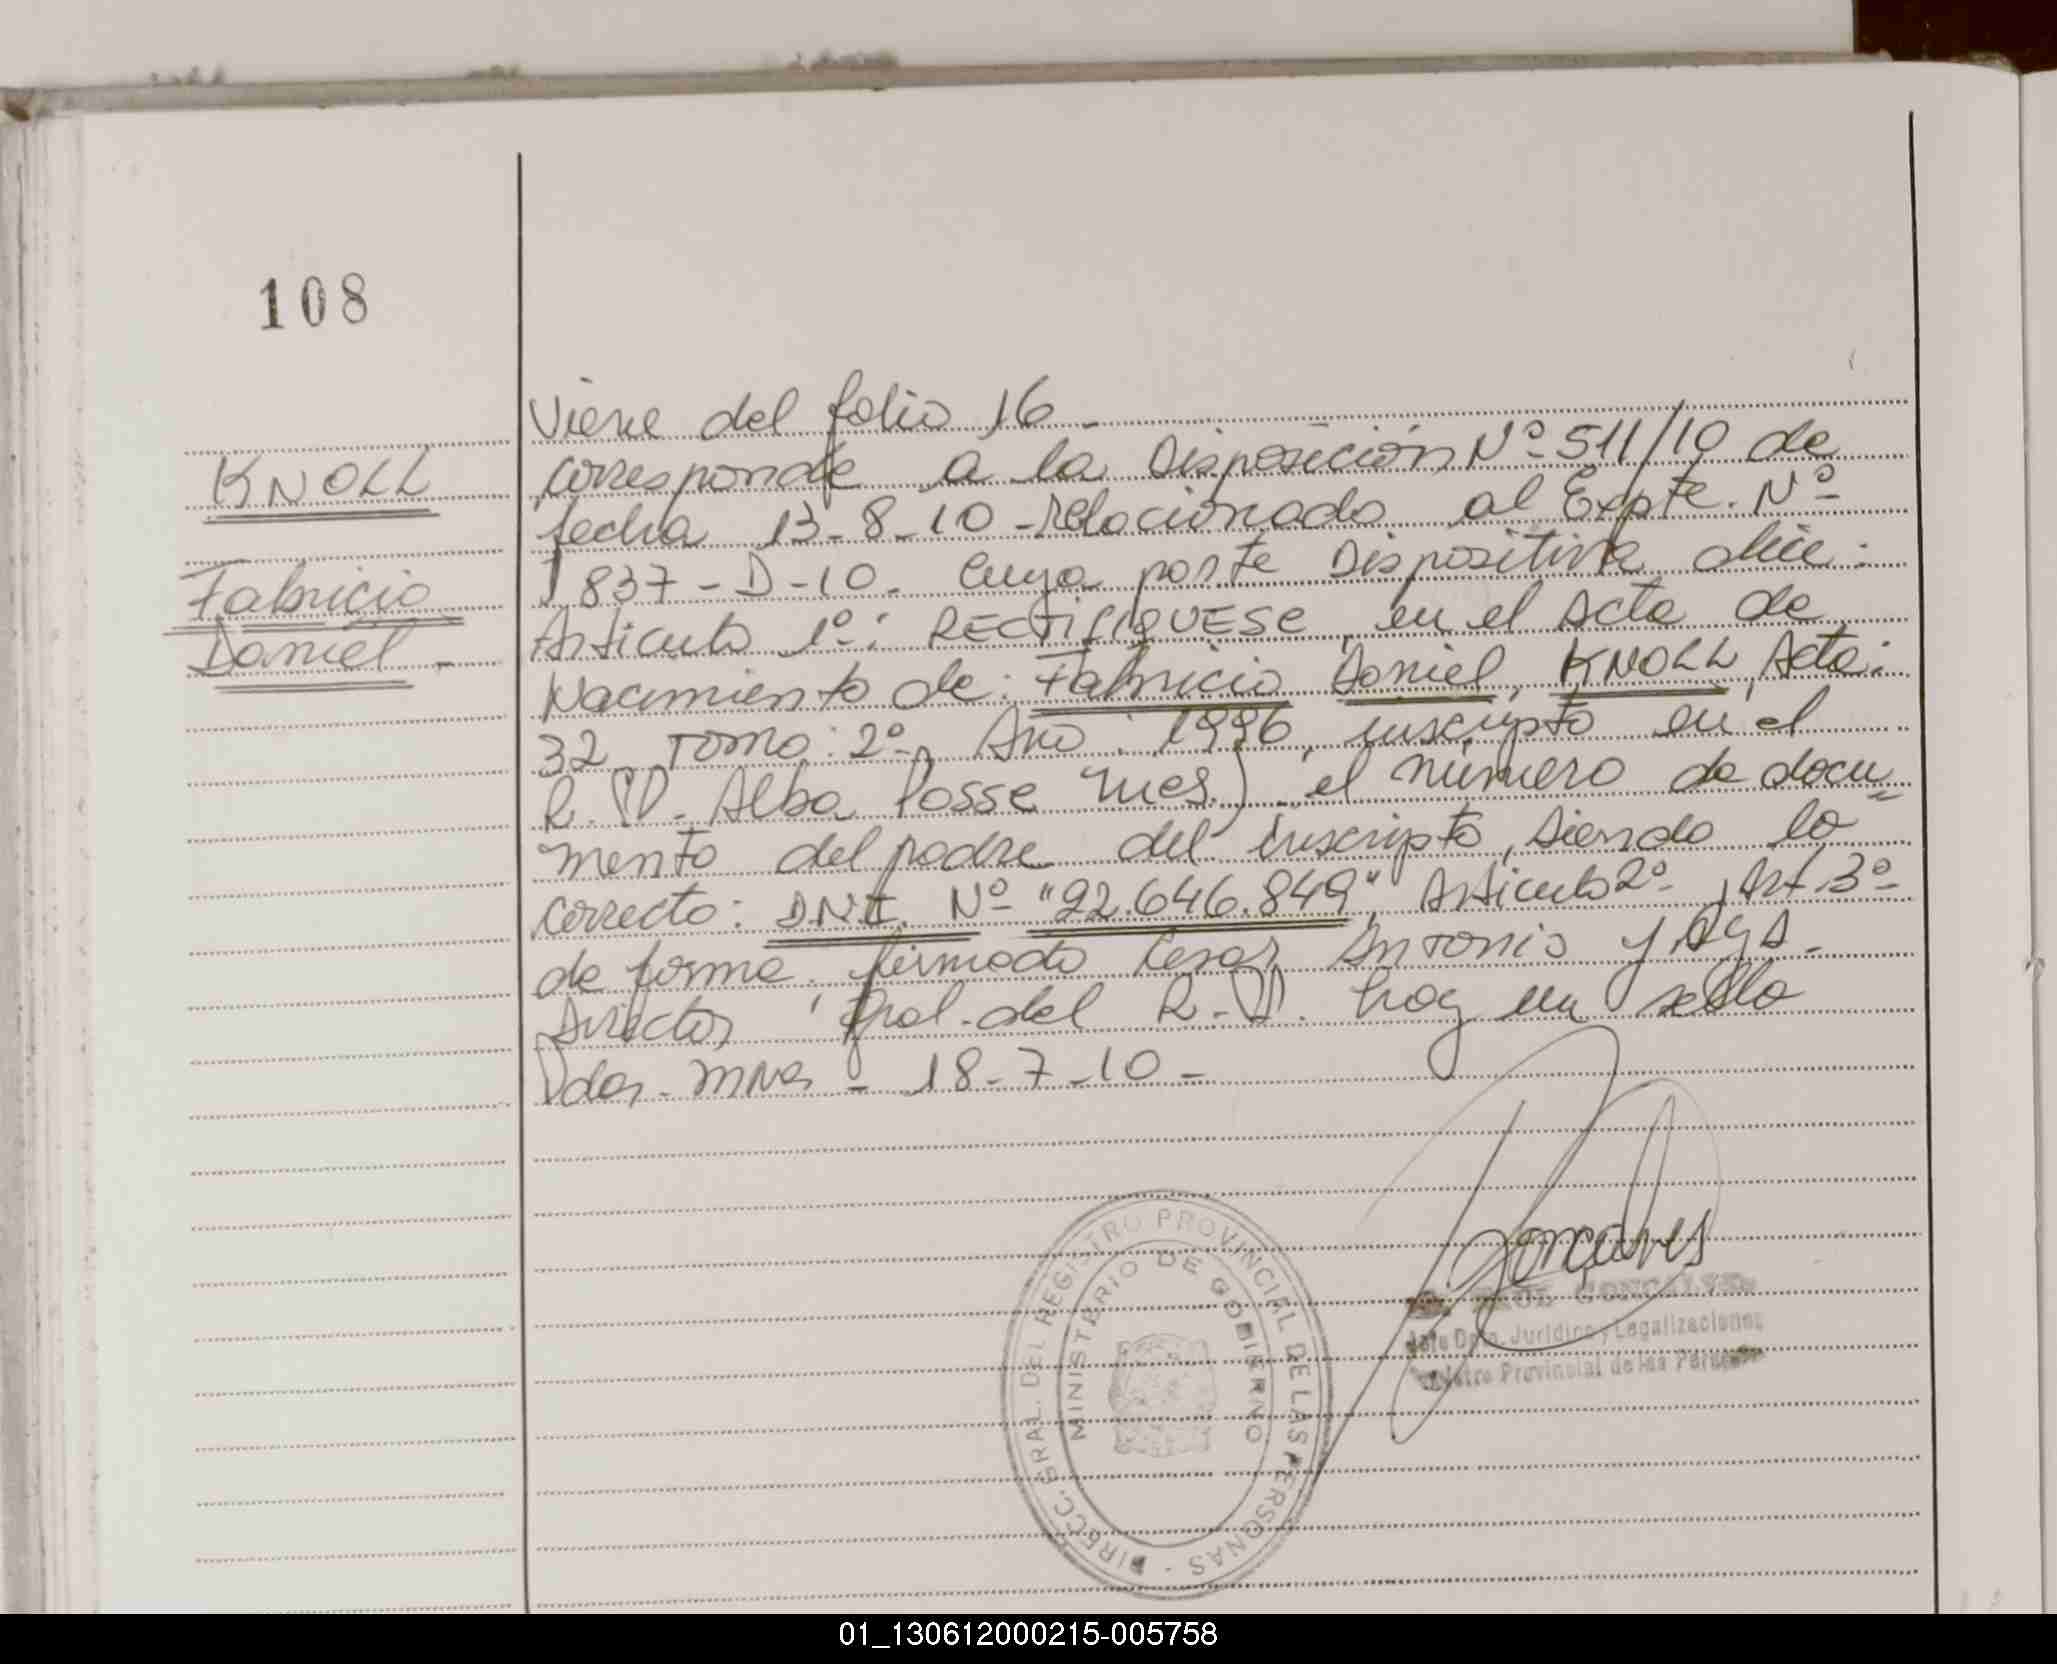 108
KNOLL
Fabricio
Daniel -
Viene del folio 16 -
corresponde a la Disposición Nº 511/10 de
fecha 13-8-10 - relacionado al Expte. Nº
1837-D-10. Cuya parte Dispositiva dice:
Articulo 1º: RECTIFIQUESE, en el Acta de
Nacimiento de: Fabricio Daniel, KNOLL, Acta:
32 Tomo: 2º, Año: 1996, inscripto en el
R.P. Alba Posse Mes.) el número de docu=
mento del padre del inscripto, siendo lo
correcto: D.N.I. Nº "92.646.849", Articulo 2º, Art 3º
de forma. firmado Cesar Antonio
Director Gral. del R.P. hay un sello
Pdas. Mnes - 18-7-10 -
Gonçalves
GONCALVES
Jefe Dpto. Juridico y Legalizaciones
Registro Provincial de las Personas
DIRECC. GRAL. DEL REGISTRO PROVINCIAL DE LAS PERSONAS -
MINISTERIO DE GOBIERNO
01_130612000215-005758